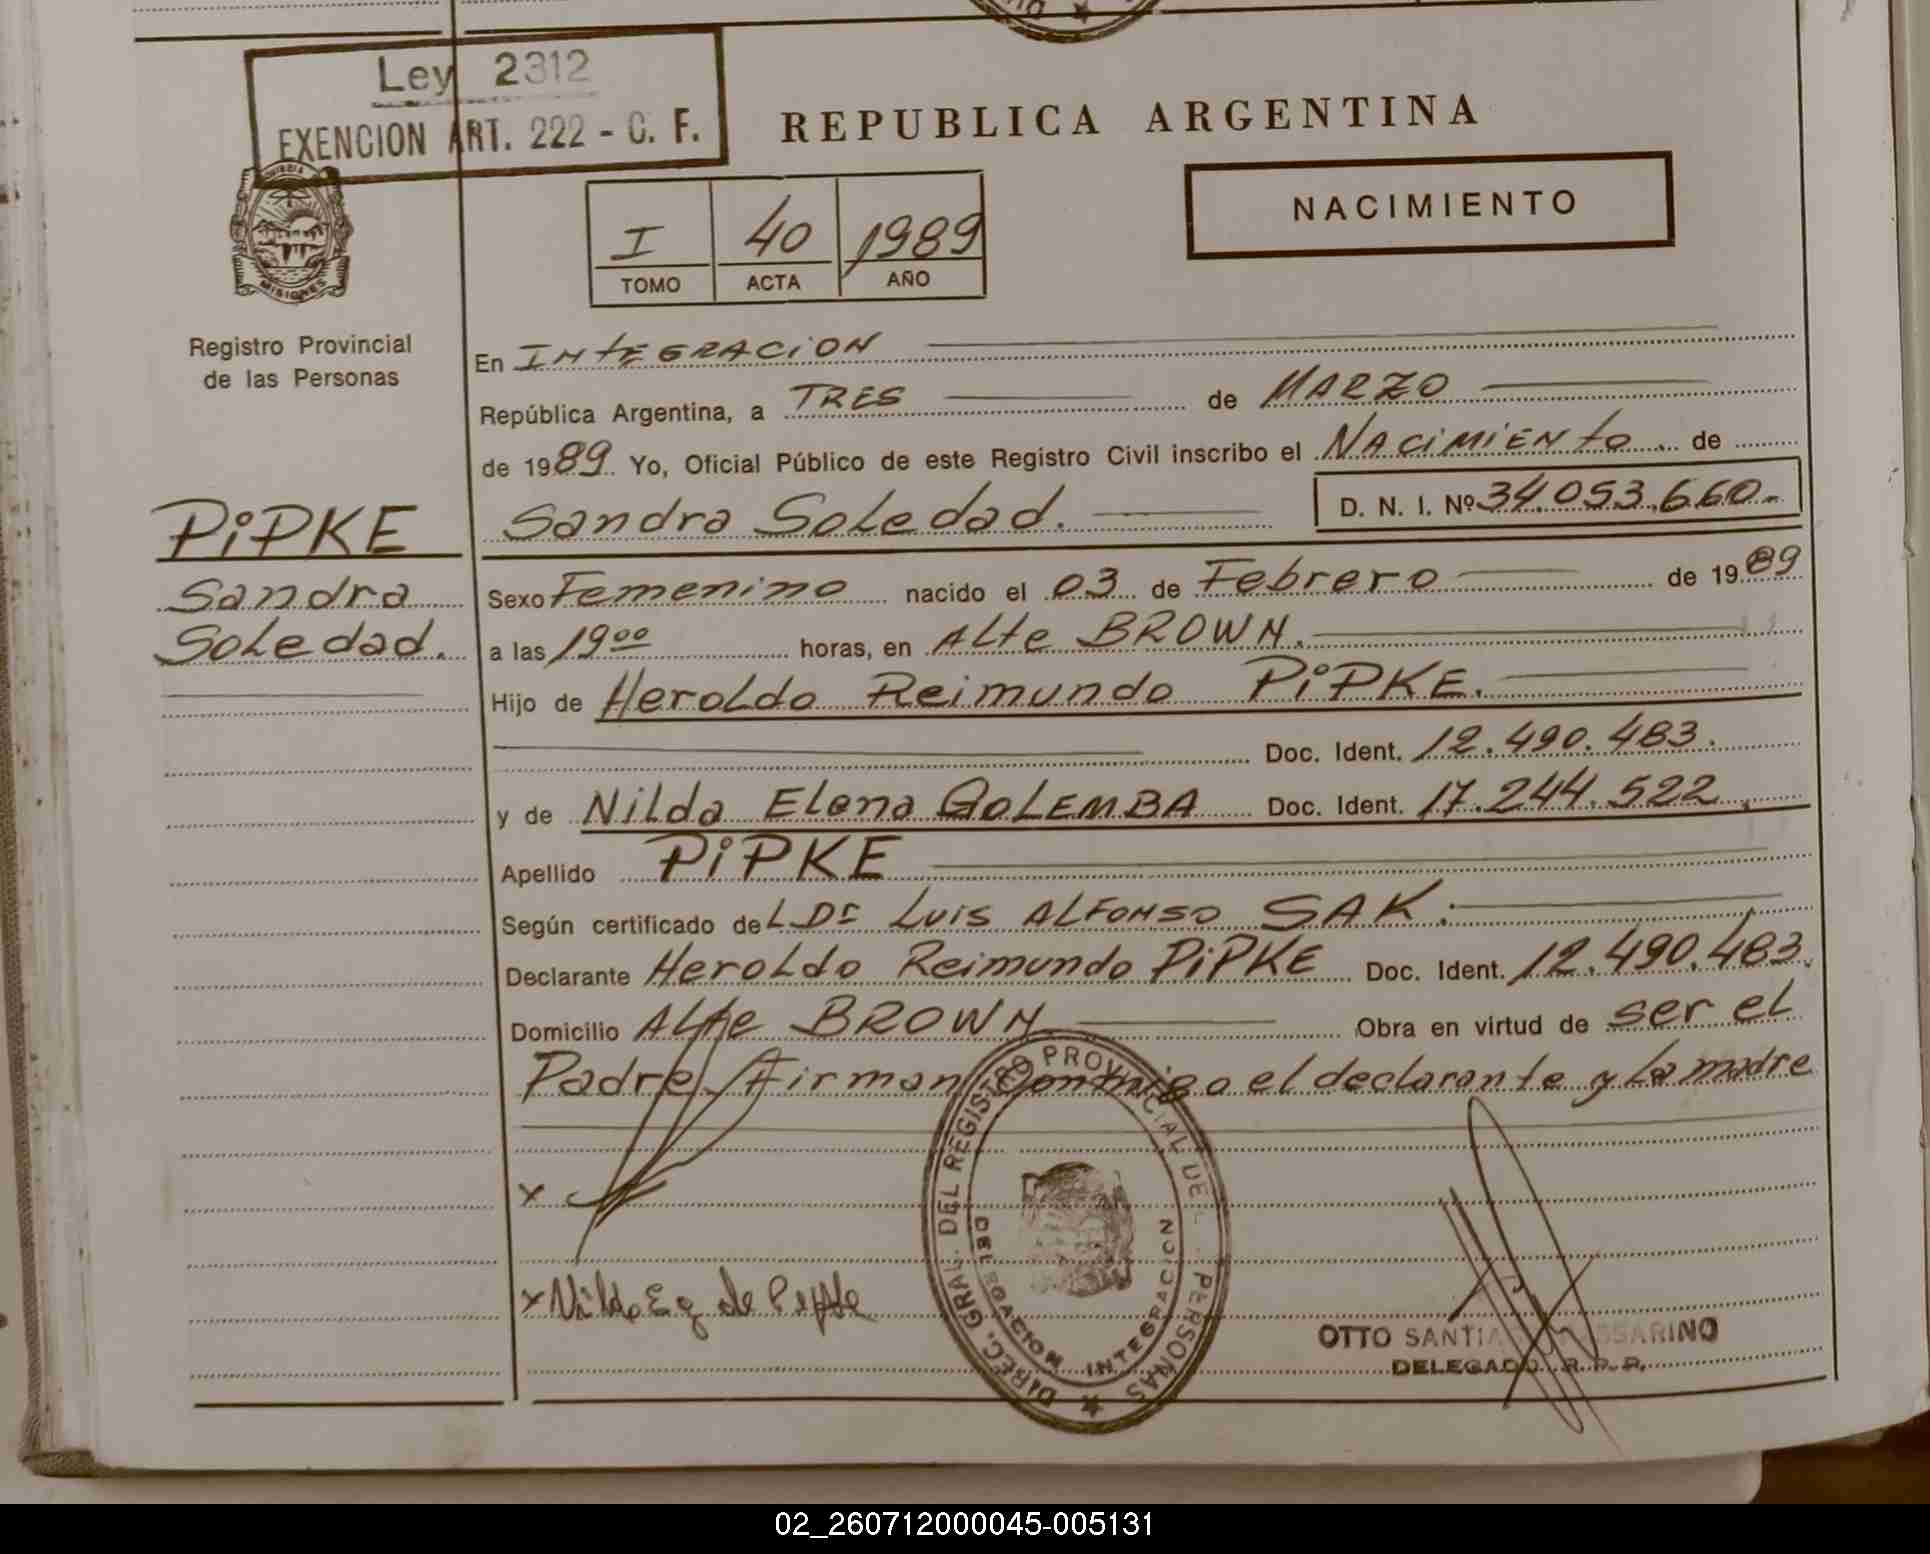 Ley 2312
EXENCION ART. 222 - C. F.
REPUBLICA ARGENTINA
NACIMIENTO
I 40 1989
TOMO ACTA AÑO
MISIONES
Registro Provincial
de las Personas
PiPKE
Sandra
Soledad.
En INtEGRACiON
República Argentina, a TRES de MARZO
de 1989 Yo, Oficial Público de este Registro Civil inscribo el NACiMiENto de
Sandra Soledad. D. N. I. Nº 34.053.660.-
Sexo Femenino nacido el 03 de Febrero de 1989
a las 19⁰⁰ horas, en ALte BROWN.
Hijo de Heroldo Reimundo PiPKE.
Doc. Ident. 12.490.483.
y de Nilda Elena GOLEMBA Doc. Ident. 17.244.522.
Apellido PiPKE
Según certificado deL Dr Luis ALFONSO SAK.
Declarante Heroldo Reimundo PiPKE Doc. Ident. 12.490.483.
Domicilio ALte BROWN Obra en virtud de ser el
Padre. Firman Conmigo el declarante y La madre
x
x Nilda E G de Pipke
DIREC. GRAL. DEL REGISTRO PROVINCIAL DE PERSONAS
DELEGACION INTEGRACION
OTTO SANTI
DELEGADO R.P.P.
02_260712000045-005131